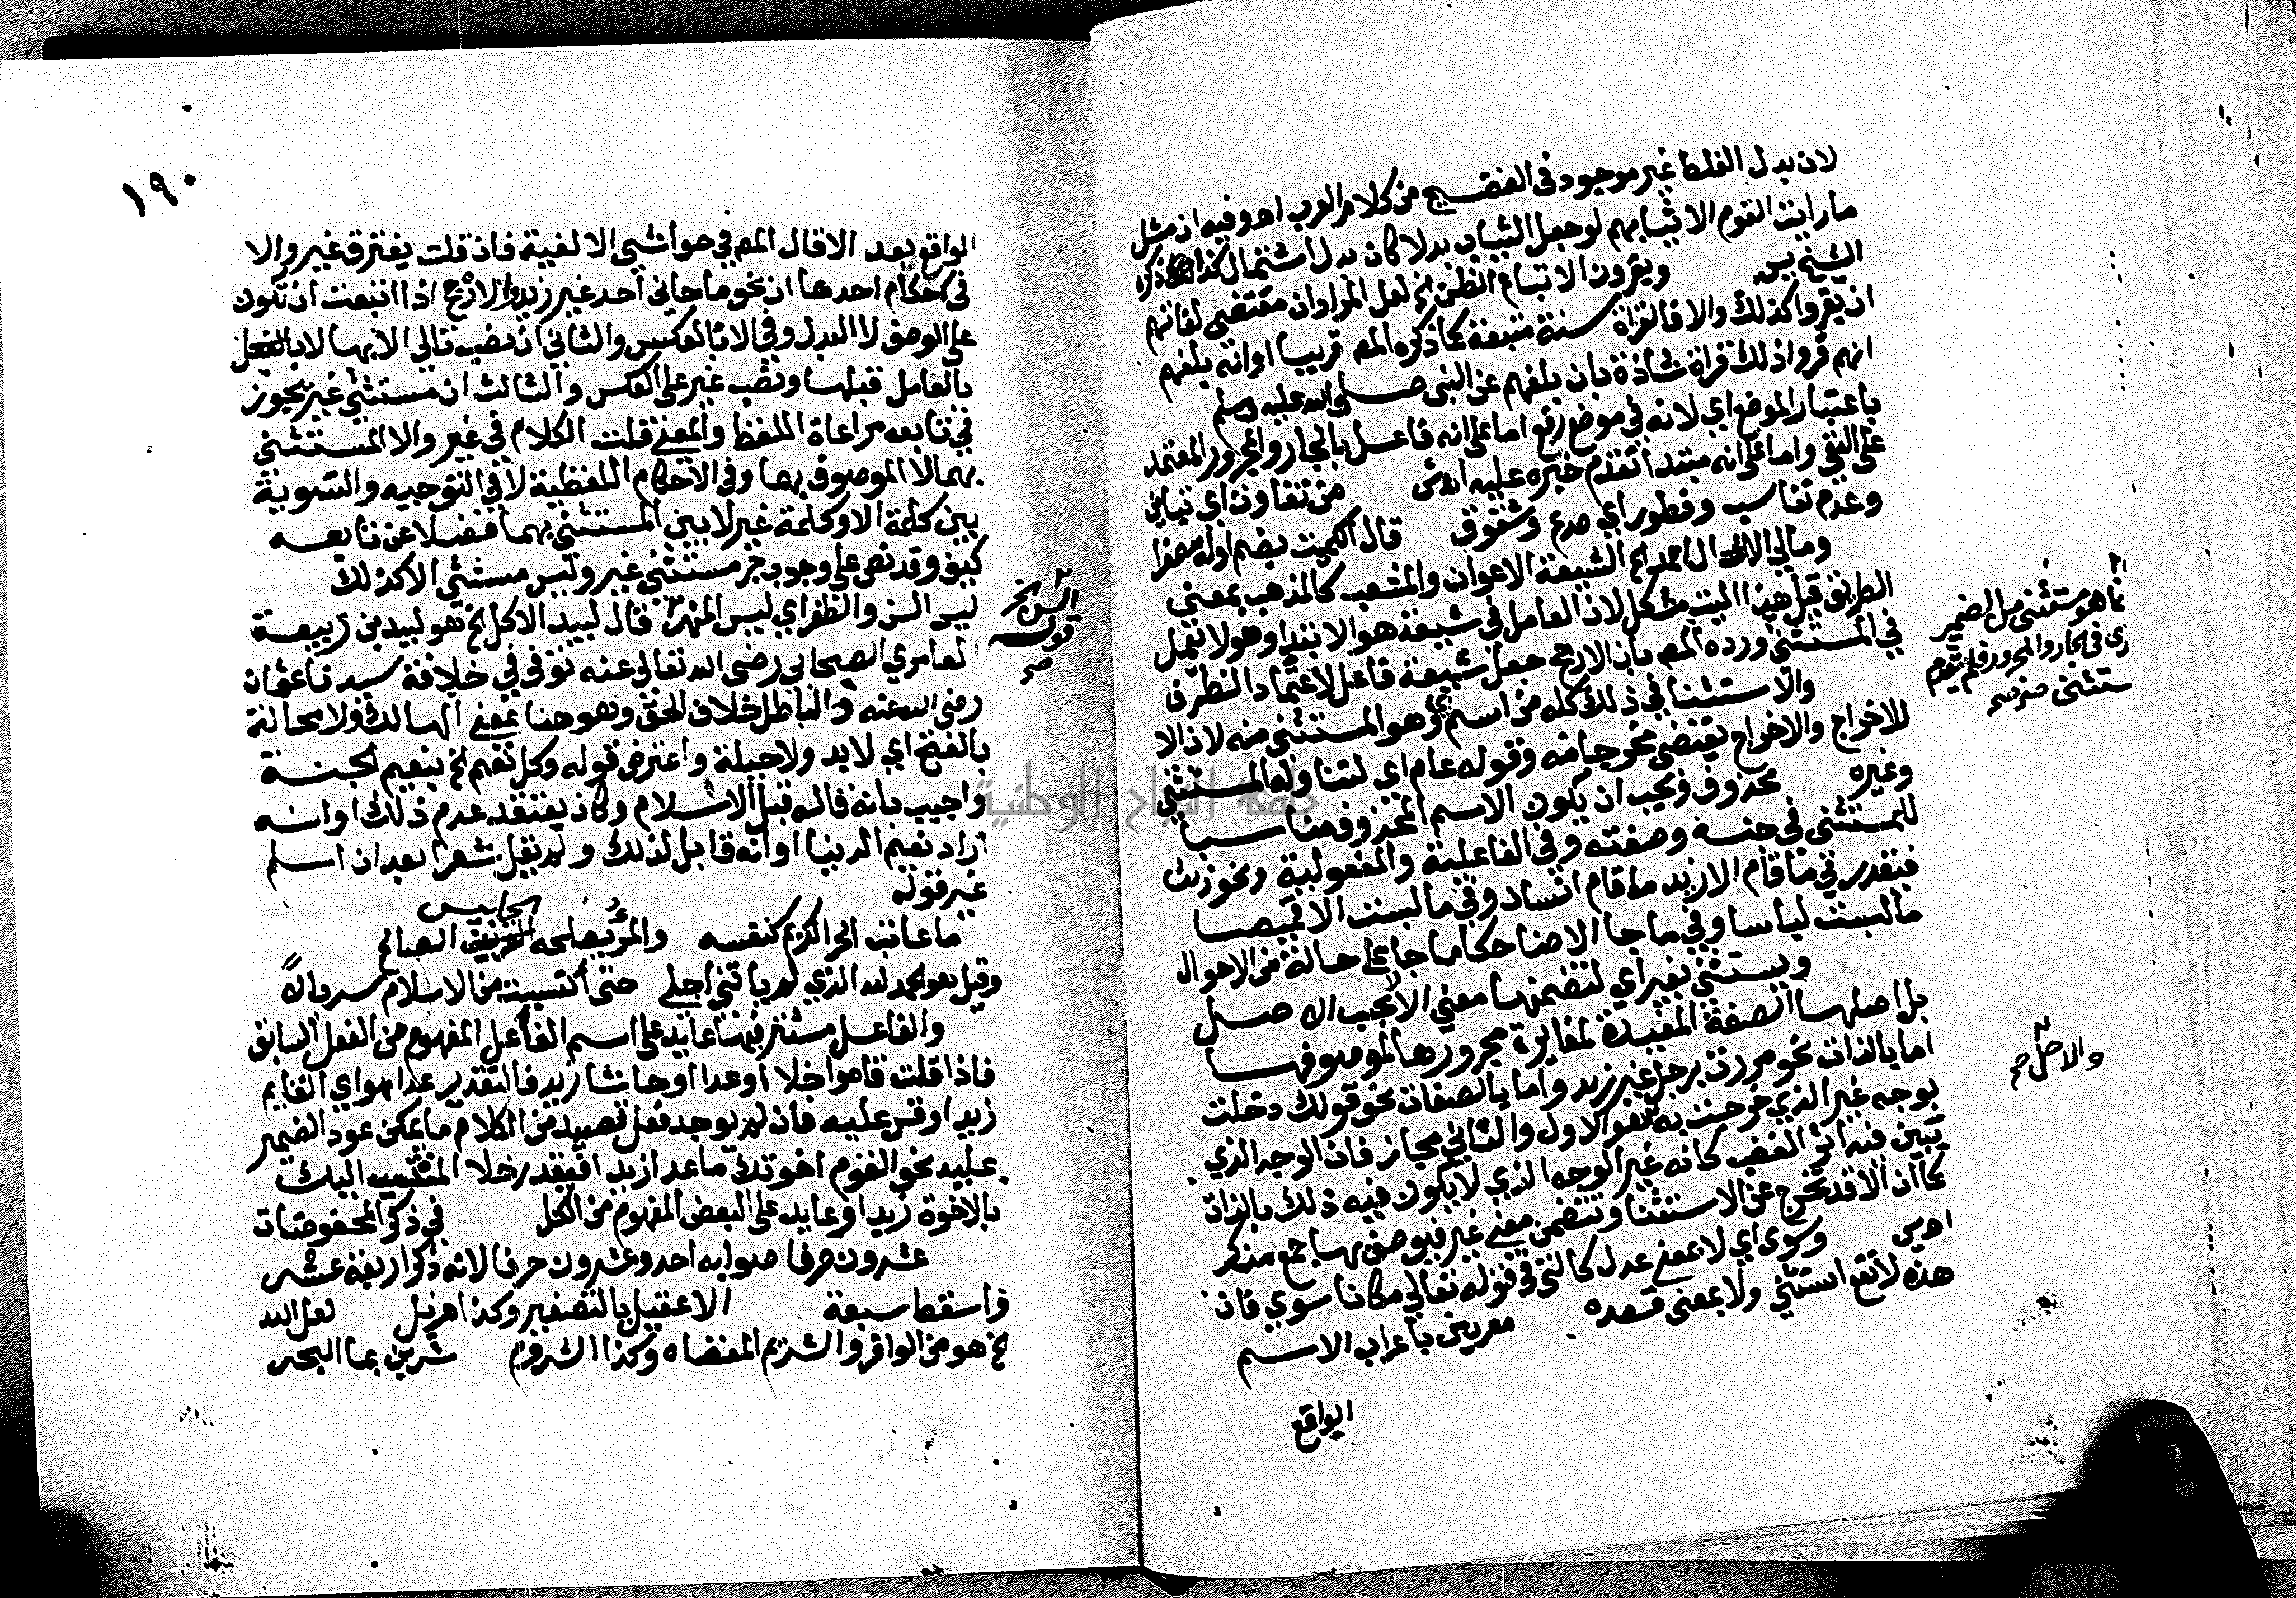 لان بدل الغلط غير موجود في الفصيح من كلام العرب اهـ وفيه ان مثل
ما رايت القوم الا ثيابهم لو جعل الثياب بدلا كان بدل اشتمال كذا ذكره
الشيخ يس ويقرون الا تباع الظن الخ لعل المراد ان مقتضى لغاتهم
ان يقروا كذلك والا فالقراة سنة متبعة كما ذكره المص قريبا او انه بلغهم
انهم قروا ذلك قراة شاذة بان بلغهم عن النبي صلى الله عليه وسلم
باعتبار الموضع اي لانه في موضع رفع اما على انه فاعل بالجار والمجرور المعتمد
على النفي واما على انه مبتدا تقدم خبره عليه من تفاوت اي تباين
وعدم تناسب وفطور اي صدع وشقوق قال الكميت بضم اوله مصغرا
ومالي الا ال احمد الخ الشيعة الاعوان والمشعب كالمذهب بمعنى
الطريق قيل هذا البيت مشكل لان العامل في شيعة هو الابتدا وهو لا يعمل
في المستثنى ورده المص بان الارجح جعل شيعة فاعلا لاعتماد الظرف
والاستثنا في ذلك كله من اسم وهو المستثنى منه لان الا
للاخراج والاخراج يقتضي مخرجا منه وقوله عام اي لتناوله المستثنى
وغيره محذوف فيجب ان يكون الاسم المحذوف مناسبا
للمستثنى في جنسه وصفته وفي الفاعلية والمفعولية ونحو ذلك
فتقدر في ما قام الا زيد ما قام انسان وفي ما لبست الا قميصا
ما لبست لباسا وفي ما جا الا ضاحكا ما جا على حالة من الاحوال
ويستثنى بغير اي لتضمنها معنى الا بحسب الاصل
بل اصلها الصفة المفيدة لمغايرة مجرورها لموصوفها
اما بالذات نحو مررت برجل غير زيد واما بالصفات نحو قولك دخلت
بوجه غير الذي خرجت به فهو الاول والثاني مجاز فان الوجه الذي
تبين فيه اثر الغضب كانه غير الوجه الذي لا يكون فيه ذلك بالذات
كما ان الا قد تخرج عن الاستثنا وتتضمن معنى غير فيوصف بها جمع منكر
اهـ يس وسوى اي لا بمعنى عدل كالتي في قوله تعالى مكانا سوى فان
هذه لا يقع استثنى ولا بمعنى قصده معربين باعراب الاسم
الواقع
مما هو مستثنى من الضمير
في الجار والمجرور فلم يتقدم
والاصل صح
١٩٠
الواقع بعد الا قال المص في حواشي الالفية فان قلت يفترق غير والا
في احكام احدها ان نحو ما جاني احد غير زيد الارجح اذا اتبعت ان تكون
على الوصف لا البدل وفي الا بالعكس والثاني ان نصب تالي الا بها لا بالفعل
بالعامل قبلها ونصب غير على العكس والثالث ان مستثنى غير يجوز
في تابعه مراعاة اللفظ والمعنى قلت الكلام في غير والا المستثنى
بهما لا الموصوف بهما وفي الاحكام اللفظية لا في التوجيه والتسوية
بين كلمة الا وكلمة غير لا بين المستثنى بهما فضلا عن تابعه
كيف وقد نص على وجوب جر مستثنى غير وليس مستثنى الا كذلك
ليس السن والظفر اي ليس المنهر قال لبيد الا كل الخ هو لبيد بن ربيعة
العامري الصحابي رضي الله تعالى عنه توفي في خلافة سيدنا عثمان
رضي الله عنه والباطل خلاف الحق وهو هنا بمعنى الهالك ولا محالة
بالفتح اي لا بد ولا حيلة واعترض قوله وكل نعيم الخ بنعيم الجنة
واجيب بانه قاله قبل الاسلام وكان يعتقد عدم ذلك او انه
اراد نعيم الدنيا او انه قابل لذلك ولم يقل شعرا بعد ان اسلم
غير قوله
ما عاتب الحر الكريم كنفسه والمرء يصلحه الجليس الصالح
وقيل هو الحمد لله الذي لم ياتني اجلي حتى اكتسيت من الاسلام سربالا
والفاعل مستتر فيها عايد على اسم الفاعل المفهوم من الفعل السابق
فاذا قلت قاموا خلا او عدا او حاشا زيد فالتقدير عدا هو اي القايم
زيدا وقس عليه فان لم يوجد فعل تصيد من الكلام ما يمكن عود الضمير
عليه نحو القوم اخوتك ما عدا زيدا فيقدر خلا المنتسب اليك
بالاخوة زيدا وعايد على البعض المفهوم من الكل في ذكر المخفوضات
عشرون حرفا صوابه احد وعشرون حرفا لانه ذكر اربعة عشر
واسقط سبعة الا عقيل بالتصغير وكذا هذيل لعل الله
الخ هو من الوافر والشريم المفضاه وكذا الشروم شربن بما البحر
السن الخ
قوله
صح
جامعة النجاح الوطنية